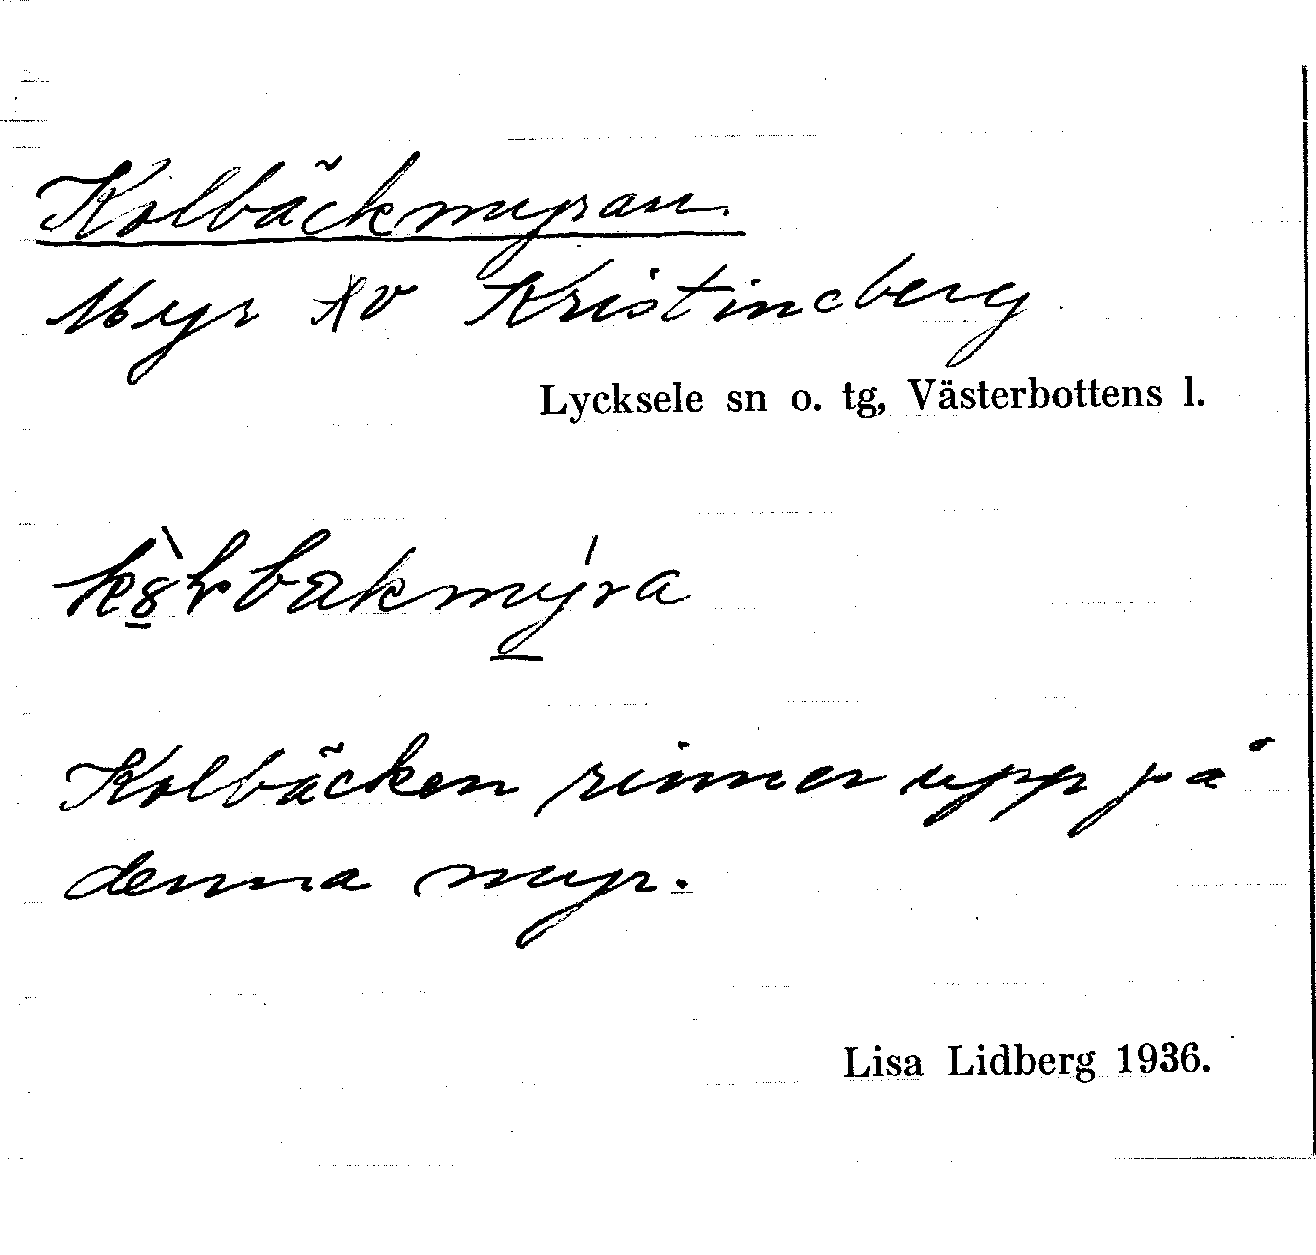 Kolbäckmyran.
Myr v Kristineberg
Lycksele sn o. tg, Västerbottens l.
Kolbäcken rinner upp på
denna myr.
Lisa Lidberg 1936.